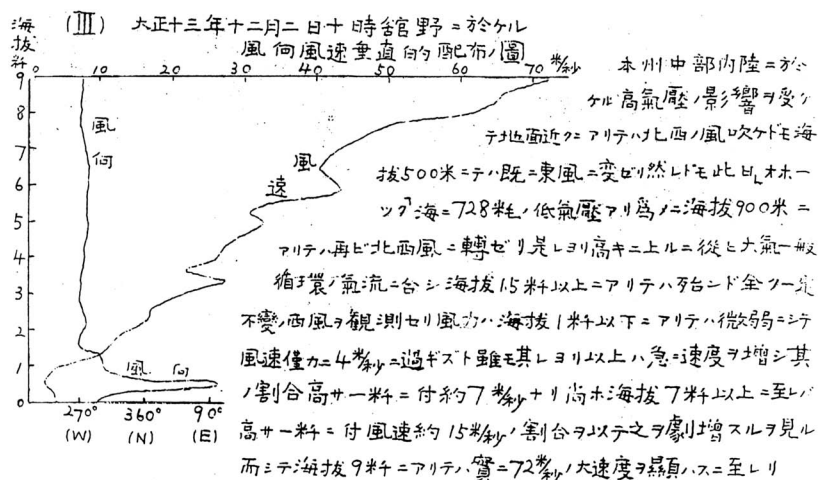 (III) 大正十三年十二月二日十時舘野ニ於ケル
風向風速垂直的配布ノ圖
海抜粁
0 10 20 30 40 50 60 70 米/秒
9
8
7
6
5
4
3
2
1
0
風向
風速
風向
270° 360° 90°
(W) (N) (E)
本州中部内陸ニ於
ケル高氣壓ノ影響ヲ受ケ
テ地面近クニアリテハ北西ノ風吹ケドモ海
抜500米ニテハ既ニ東風ニ変ゼリ然レドモ此日「オホー
ツク」海ニ728粍ノ低氣壓アリ爲メニ海抜900米ニ
アリテハ再ビ北西風ニ轉ゼリ是レヨリ高キニ上ルニ從ヒ大氣一般
循環ノ氣流ニ合シ海抜1.5粁以上ニアリテハ殆ンド全ク一定
不變ノ西風ヲ観測セリ風力ハ海抜1粁以下ニアリテハ微弱ニシテ
風速僅カニ4米/秒ニ過ギズト雖モ其レヨリ以上ハ急ニ速度ヲ増シ其
ノ割合高サ一粁ニ付約7米/秒ナリ尚ホ海抜7粁以上ニ至レバ
高サ一粁ニ付風速約15米/秒ノ割合ヲ以テ之ヲ劇増スルヲ見ル
而シテ海抜9粁ニアリテハ實ニ72米/秒ノ大速度ヲ顯ハスニ至レリ